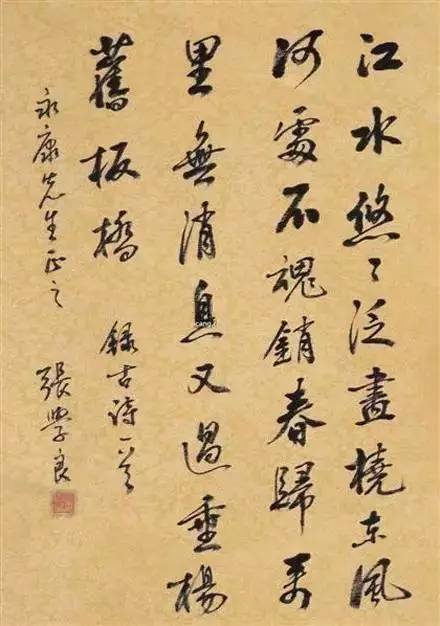 江水悠〻泛畫橈東風
何處不魂銷春歸萬
里無消息又過垂楊
舊板橋 錄古詩一首
永康先生正之 張學良